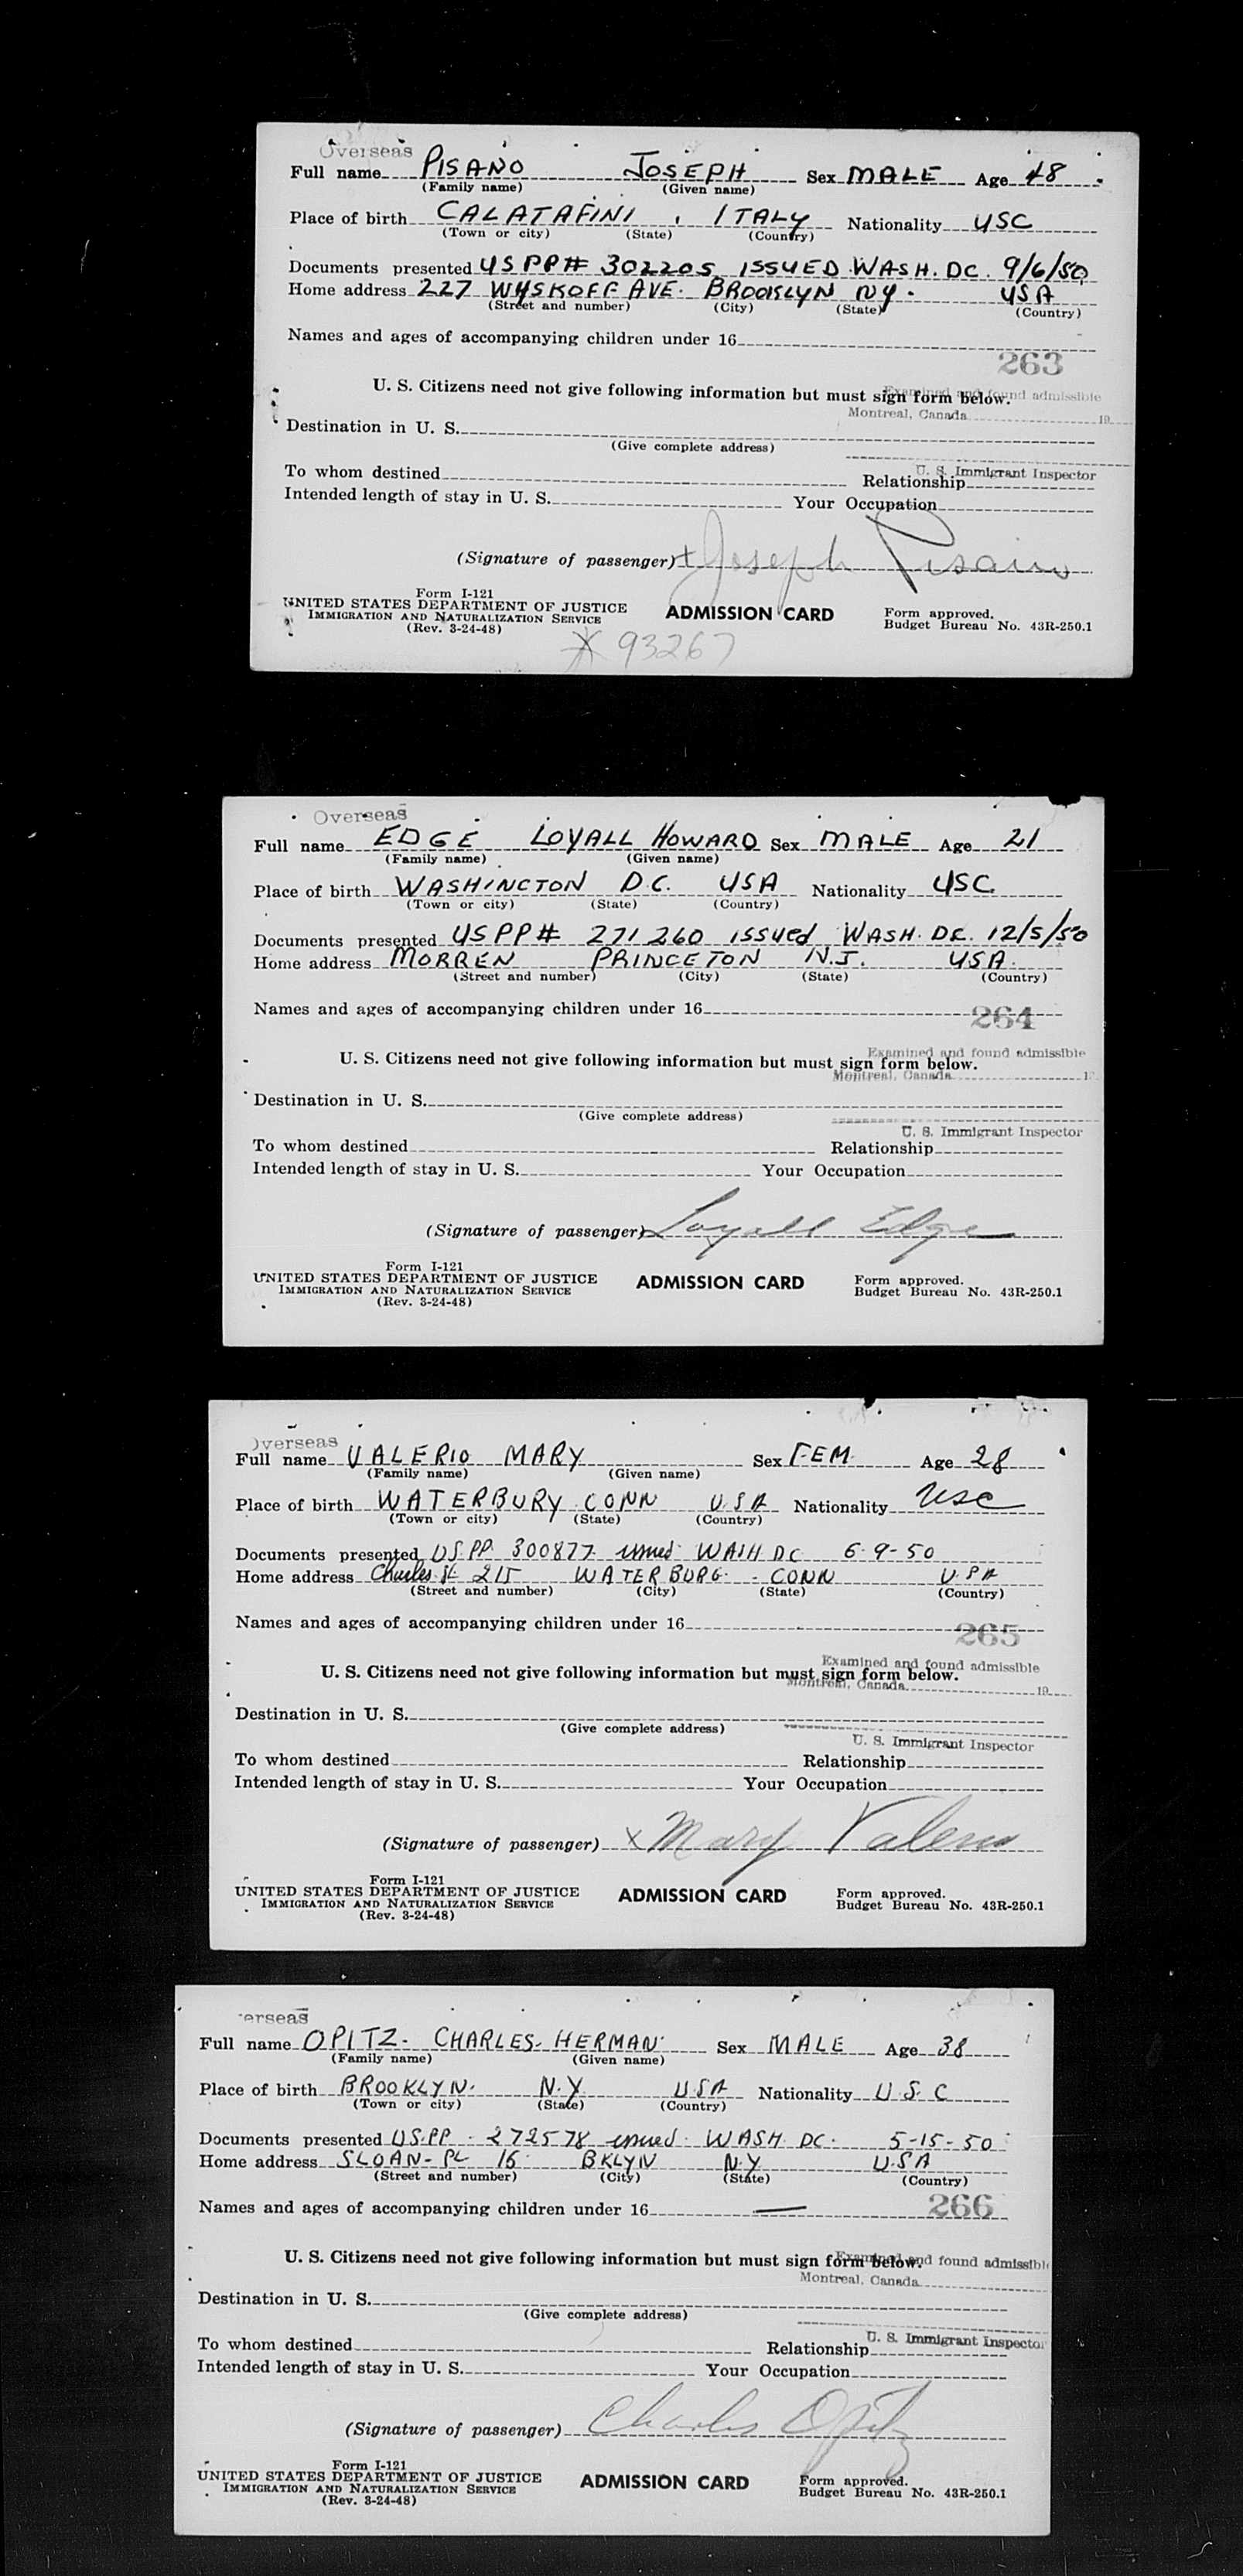 Overseas
Full name PISANO JOSEPH Sex MALE Age 48
(Family name) (Given name)
Place of birth CALATAFINI, ITALY Nationality USC
(Town or city) (State) (Country)
Documents presented USPP# 302205 ISSUED WASH. DC. 9/6/50
Home address 227 WYSKOFF AVE. BROOKLYN NY. USA
(Street and number) (City) (State) (Country)
Names and ages of accompanying children under 16
263
U. S. Citizens need not give following information but must sign form below.
Examined and found admissible
Montreal, Canada 19
Destination in U. S.
(Give complete address)
U. S. Immigrant Inspector
To whom destined Relationship
Intended length of stay in U. S. Your Occupation
(Signature of passenger) x Joseph Pisano
Form I-121
UNITED STATES DEPARTMENT OF JUSTICE ADMISSION CARD Form approved.
IMMIGRATION AND NATURALIZATION SERVICE Budget Bureau No. 43R-250.1
(Rev. 3-24-48)
X 93267
Overseas
Full name EDGE LOYALL HOWARD Sex MALE Age 21
(Family name) (Given name)
Place of birth WASHINGTON D.C. USA Nationality USC
(Town or city) (State) (Country)
Documents presented USPP# 271260 issued WASH. DC. 12/5/50
Home address MORREN PRINCETON N.J. USA.
(Street and number) (City) (State) (Country)
Names and ages of accompanying children under 16
264
U. S. Citizens need not give following information but must sign form below.
Examined and found admissible
Montreal, Canada 1
Destination in U. S.
(Give complete address)
U. S. Immigrant Inspector
To whom destined Relationship
Intended length of stay in U. S. Your Occupation
(Signature of passenger) x Loyall Edge
Form I-121
UNITED STATES DEPARTMENT OF JUSTICE ADMISSION CARD Form approved.
IMMIGRATION AND NATURALIZATION SERVICE Budget Bureau No. 43R-250.1
(Rev. 3-24-48)
Overseas
Full name VALERIO MARY Sex FEM. Age 28
(Family name) (Given name)
Place of birth WATERBURY CONN USA Nationality USC
(Town or city) (State) (Country)
Documents presented US.PP. 300877 issued WASH DC 6-9-50
Home address Charles St 215 WATERBURG - CONN U.S.A
(Street and number) (City) (State) (Country)
Names and ages of accompanying children under 16
265
U. S. Citizens need not give following information but must sign form below.
Examined and found admissible
Montreal, Canada 19
Destination in U. S.
(Give complete address)
U. S. Immigrant Inspector
To whom destined Relationship
Intended length of stay in U. S. Your Occupation
(Signature of passenger) x Mary Valerio
Form I-121
UNITED STATES DEPARTMENT OF JUSTICE ADMISSION CARD Form approved.
IMMIGRATION AND NATURALIZATION SERVICE Budget Bureau No. 43R-250.1
(Rev. 3-24-48)
erseas
Full name OPITZ- CHARLES- HERMAN Sex MALE Age 38
(Family name) (Given name)
Place of birth BROOKLYN. N.Y USA Nationality U.S.C
(Town or city) (State) (Country)
Documents presented US.PP - 272578 issued. WASH. DC. 5-15-50
Home address SLOAN- PL 16 BKLYN N.Y U.S.A
(Street and number) (City) (State) (Country)
Names and ages of accompanying children under 16 —
266
U. S. Citizens need not give following information but must sign form below.
Examined and found admissible
Montreal, Canada
Destination in U. S.
(Give complete address)
U. S. Immigrant Inspector
To whom destined Relationship
Intended length of stay in U. S. Your Occupation
(Signature of passenger) Charles Opitz
Form I-121
UNITED STATES DEPARTMENT OF JUSTICE ADMISSION CARD Form approved.
IMMIGRATION AND NATURALIZATION SERVICE Budget Bureau No. 43R-250.1
(Rev. 3-24-48)